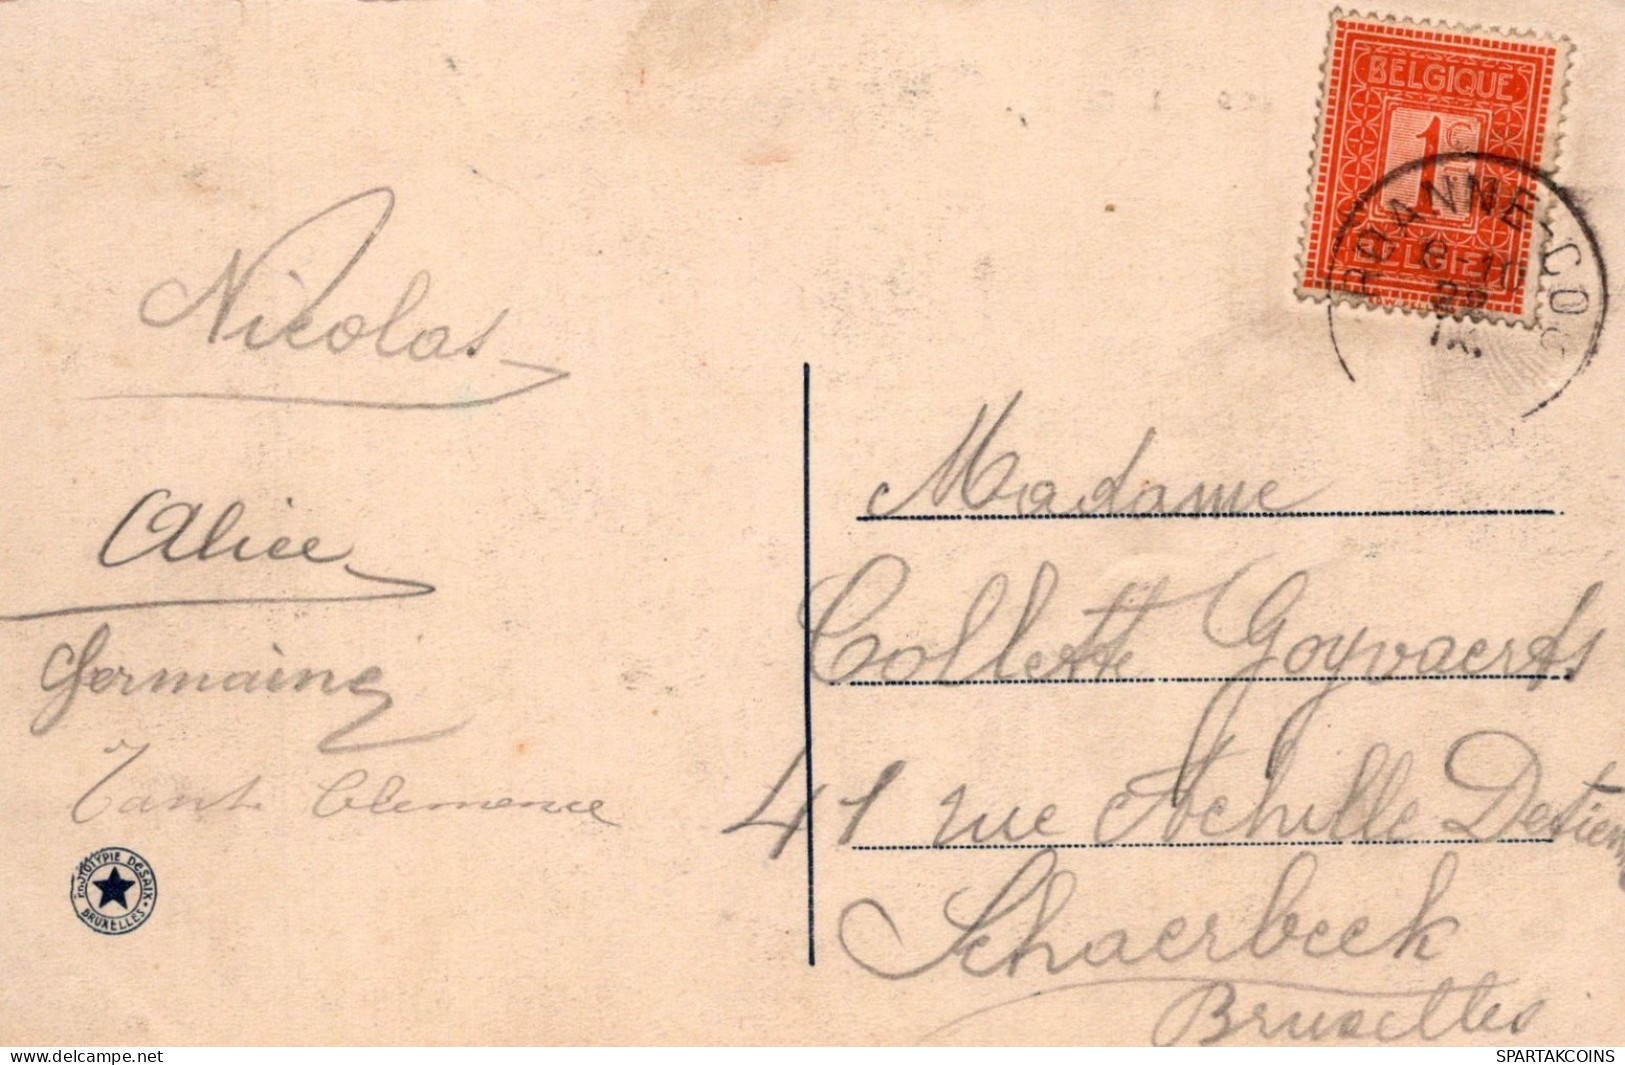 BELGIQUE
1 C
BELGIË
8-10
IX.
Nicolas
Alice
Germaine
Tante Clemence
PHOTOTYPIE DESAIX
BRUXELLES
Madame
Collette Goyvaerts
41 rue Achille Detienne
Schaerbeek
Bruxelles
www.delcampe.net
SPARTAKCOINS